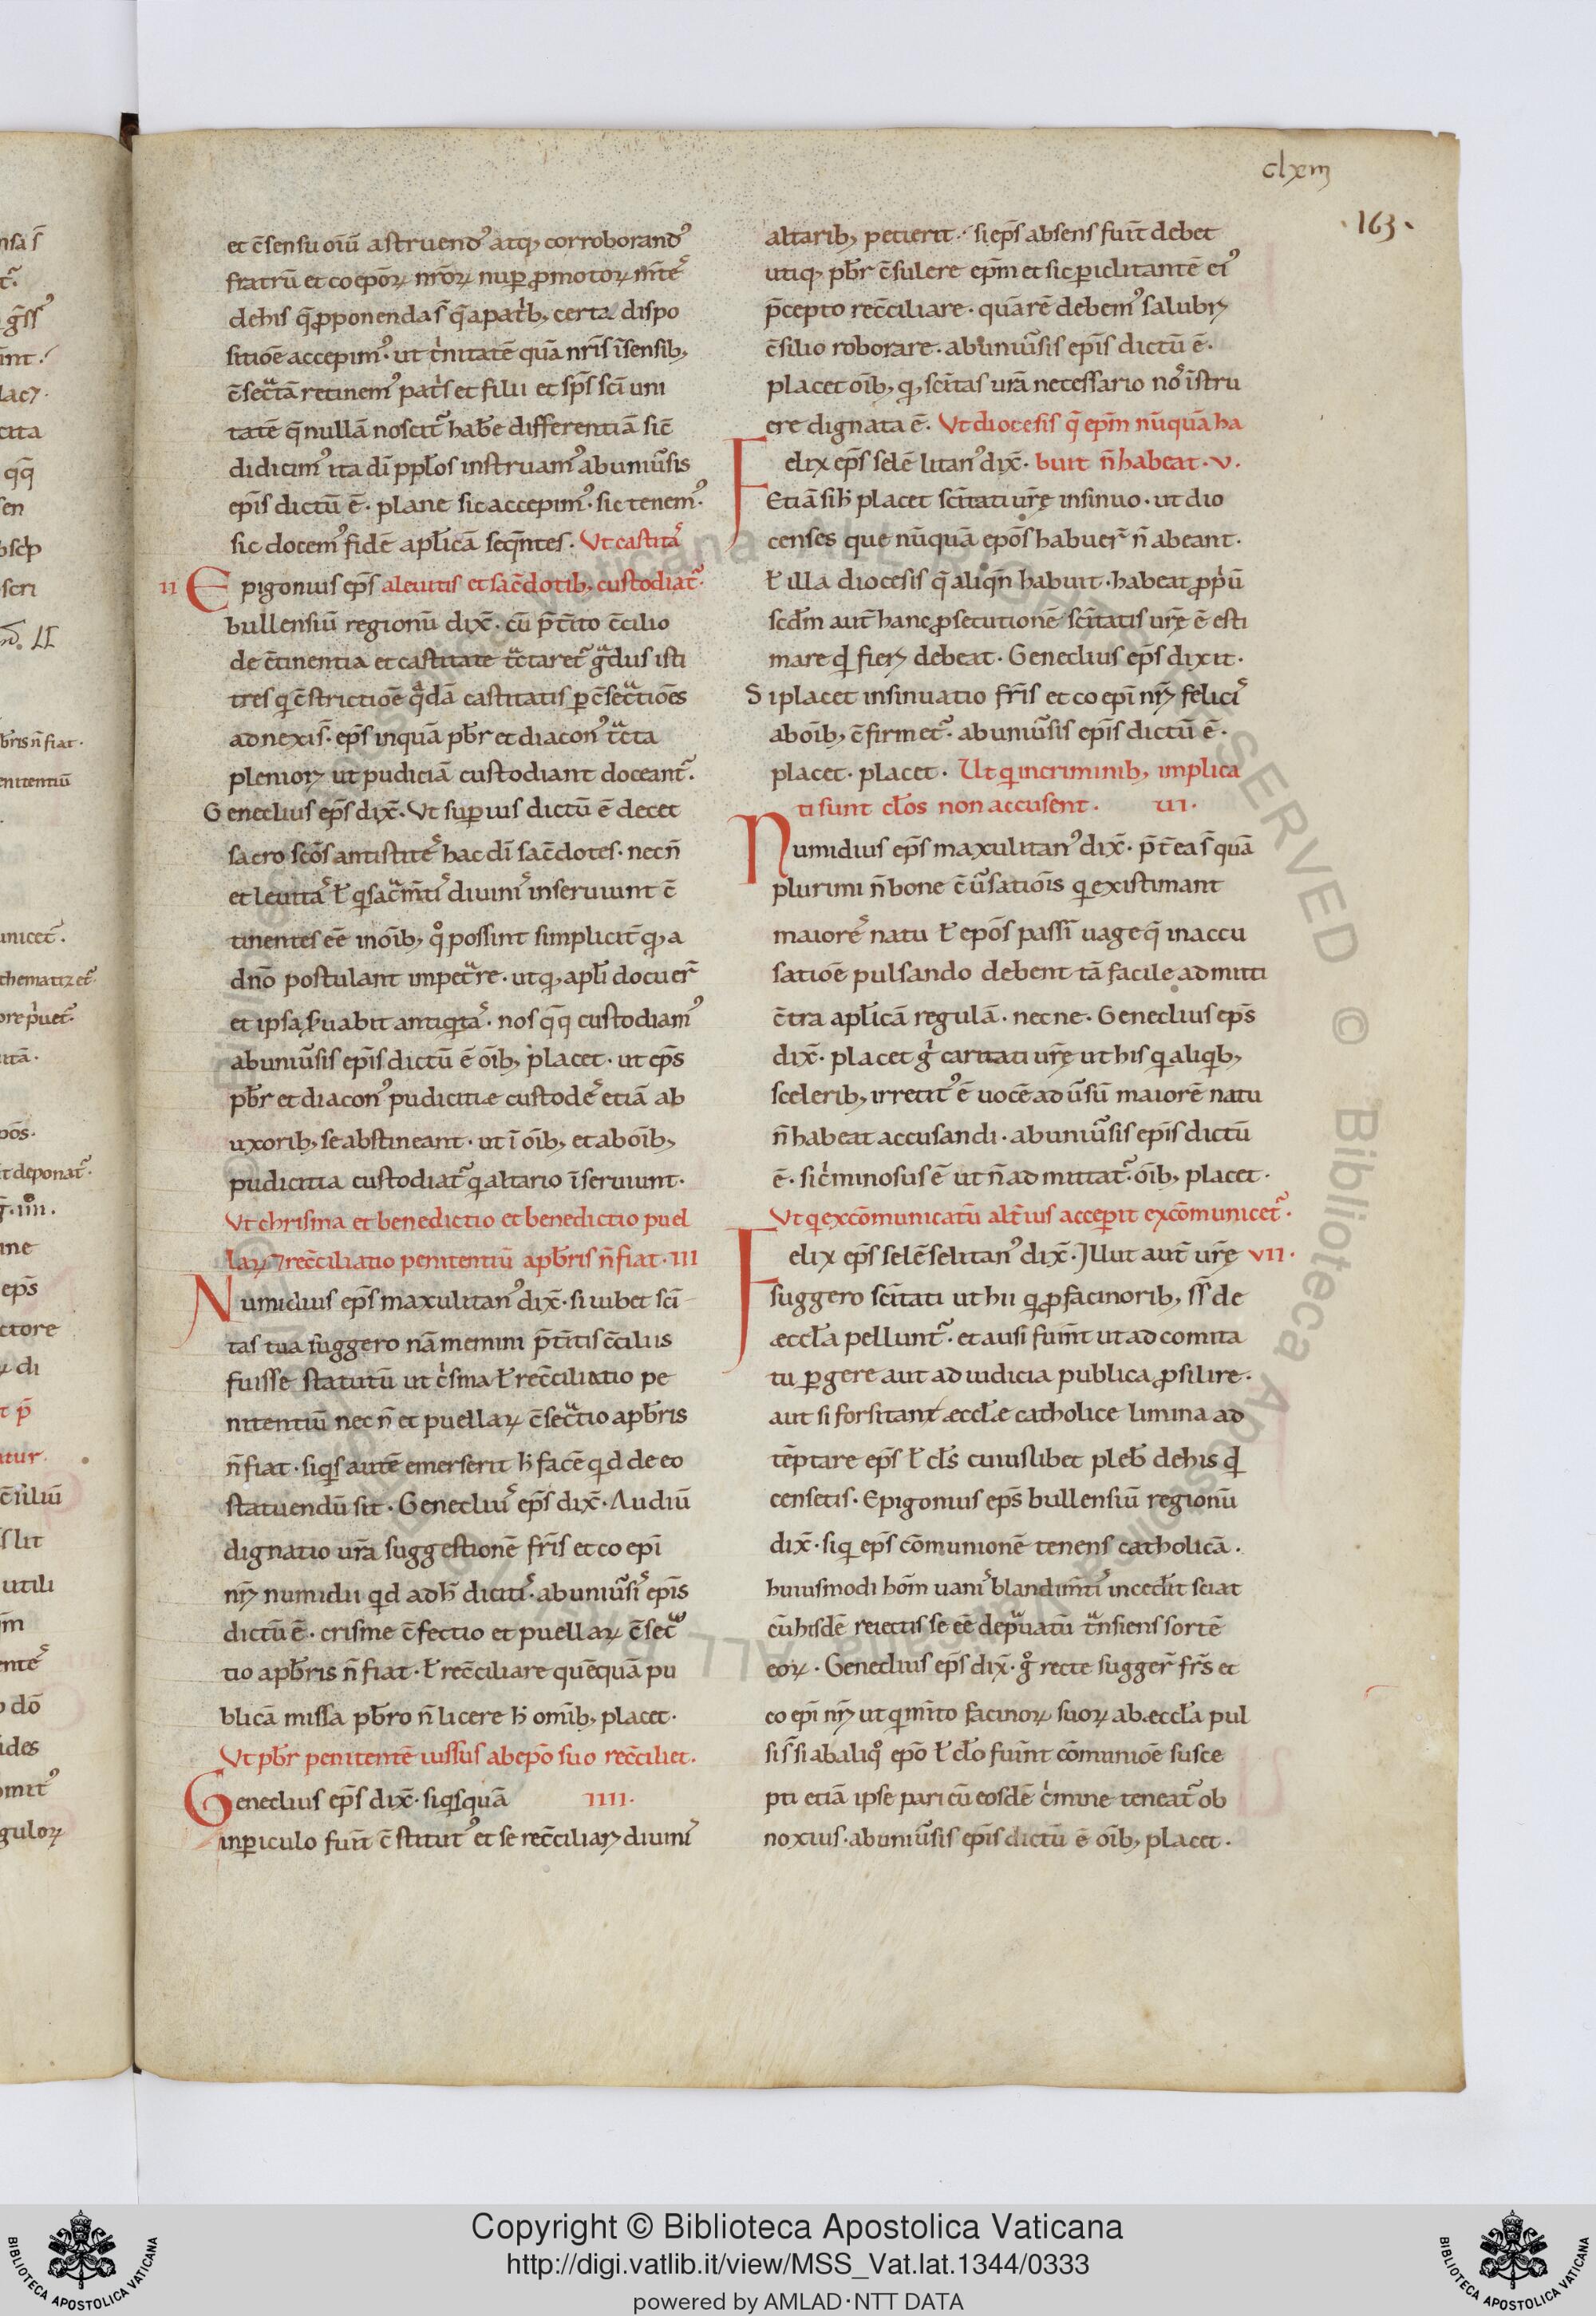 clxm
·163·
et c̄sensu oīu astruendꝰ atq; corroborandꝰ
fratrū et coepōꝝ nr̄oꝝ nuꝑ ꝓmotoꝝ m̄teˢ
dehis q̄ ꝓponenda s̄ q̄ apat͛b; certa dispo
sitiōe accepimꝰ· ut t͛nitatē quā nr̄is īsensib;
c̄secᷓtā retinemꝰ pat͛s et filii et sp̄s sc̄i uni
tatē q̄ nullā noscit᷑ habe᷑e differentiā sic̄
didicimꝰ ita dī ppl̄os instruamꝰ abuniūsis
ep̄is dictū ē· plane sic accepimꝰ· sic tenemꝰ·
sic docemꝰ fidē apl̄icā seq̄ntes· Vt castitaˢ
II Epigonius ep̄s aleuitis et sac̄dotib; custodiat᷑·
bullensiū regionū dix̄· cū p̄t̄ito c̄cilio
de c̄tinentia et castitate tᷓctaret᷑ gᷓdus isti
tres qͥ c̄strictiōe qᷓdā castitatis ꝑ c̄secᷓtiōes
adnexi s̄· ep̄s inquā pb̄r et diaconꝰ tᷓcta
pleniorꝫ ut pudiciā custodiant doceant᷑·
Geneclius ep̄s dix̄· Vt suꝑius dictū ē decet
sacro sc̄os antistiteˢ hac dī sac̄dotes· necn̄
et leuitaˢ ł qͥ sacᷓm̄tiˢ diuiniˢ inseruiunt c̄
tinentes eē inoīb; qͦ possint simplicit̄ q; a
dn̄o postulant impetᷓre· ut q; apl̄i docuer̄
et ipsa ẜuabit antiqͥtaˢ· nos qq̄ custodiamꝰ
abuniūsis ep̄is dictū ē oīb; placet· ut ep̄s
pb̄r et diaconꝰ pudicitiæ custodeˢ etiā ab
uxorib; se abstineant· ut ī oīb; et aboīb;
pudicitia custodiat᷑ qͥ altario īseruiunt·
Vt chrisma et benedictio et benedictio puel
laꝝ ⁊ rec̄ciliatio penitentiū apb̄ris n̄ fiat· III
Numidius ep̄s maxulitanꝰ dix̄· si iubet sc̄i
tas tua suggero nā memini p̄t̄itis c̄ciliis
fuisse statutū ut c͛sma ł rec̄ciliatio pe
nitentiū nec n̄ et puellaꝝ c̄secᷓtio apb̄ris
n̄ fiat· siqͥs autē emerserit h̄ facē qd de eo
statuendū sit· Genecliuˢ ep̄s dix̄· Audiū
dignatio ur̄a suggestionē fr̄is et co epī
nr̄ꝫ numidii qd ad h̄ dicitiˢ· abuniūsiˢ ep̄is
dictū ē· crisme c̄fectio et puellaꝝ c̄secᷓ
tio apb̄ris n̄ fiat· ł rec̄ciliare quēquā pu
blicā missa pb̄ro n̄ licere h̄ omīb; placet·
Vt pb̄r penitentē iussus abepō suo rec̄ciliet.
Geneclius ep̄s dix̄· siqͥsquā IIII·
inꝑiculo fuīt c̄stitutꝰ et se rec̄ciliarꝫ diuiniˢ
altarib; petierit· si ep̄s absens fuīt debet
utiq; pb̄r c̄sulere ep̄m et sic ꝑiclitantē eiꝰ
p̄cepto rec̄ciliare· quā rē debemꝰ salubrꝫ
c̄silio roborare· abuniūsis ep̄is dictū ē·
placet oīb; q; sc̄itas ur̄a necessario noˢ īstru
ere dignata ē· Vt diocesis q̄ ep̄m nūquā ha
Felix ep̄s selē litanꝰ dix̄· buit n̄ habeat· v.
Etiā si h̄ placet sc̄itati ur̄ę insinuo· ut dio
censes que nūquā epōs habuer̄ n̄ abeant·
ł illa diocesis q̄ aliqn̄ habuit· habeat ꝓp͛ū
scd̄m aut̄ hanc ꝓsecutionē sc̄itatis ur̄ę ē esti
mare qd fierꝫ debeat· Geneclius ep̄s dixit·
Siplacet insinuatio fr̄is et co epī nr̄ꝫ feliciˢ
aboīb; c̄firmet᷑· abuniūsis ep̄is dictū ē·
placet· placet· Ut qͥ incriminib; implica
ti sunt cl̄os non accusent· VI·
Numidius ep̄s maxulitanꝰ dix̄· p̄t̄ea s̄ quā
plurimi n̄ bone c̄ūsatiōis qͥ existimant
maioreˢ natu ł epōs passī uage q̄ inaccu
satiōe pulsando debent tā facile admitti
c̄tra apl̄icā regulā· necne· Geneclius ep̄s
dix̄· placet g͛ caritati ur̄ę ut his qͥ aliqͥb;
scelerib; irretitꝰ ē uocē ad ūsū maiorē natu
n̄ habeat accusandi· abuniūsis ep̄is dictū
ē· si c͛minosus ē ut n̄ admittat᷑· oīb; placet·
Vt qͥ excōmunicatū alt̄ius acceꝑit excōmunicet᷑·
Felix ep̄s selēselitanꝰ dix̄· Illut aut̄ ur̄ę VII·
suggero sc̄itati ut hii qͥ ꝓ facinorib; ss̄ de
æccl̄a pellunt᷑· et ausi fuīnt ut ad comita
tu ꝑgere aut ad iudicia publica ꝓsilire·
aut si forsitant æccl̄æ catholice limina ad
tēptare ep̄s ł cl̄s cuiuslibet pleb̄ dehis qd
censetis· Epigonius ep̄s bullensiū regionū
dix̄· siqͥ ep̄s cōmunionē tenens catholicā·
huiusmodi hom̄ uaniˢ blandim̄tiˢ incedīt sciat
cū hisdē reiectis se eē dep͛uatū tᷓnsiens sortē
eoꝝ· Geneclius ep̄s dix̄· gͦ recte sugger̄ fr̄s et
co epī nr̄ꝫ ut qͥ mīto facinoꝝ suoꝝ abæccl̄a pul
si s̄ si abaliqͦ epō ł cl̄o fuīnt cōmuniōe susce
pti etiā ipse pari cū eosdē c͛mine teneat᷑ ob
noxius· abuniūsis ep̄is dictū ē oīb; placet·
Copyright © Biblioteca Apostolica Vaticana
http://digi.vatlib.it/view/MSS_Vat.lat.1344/0333
powered by AMLAD·NTT DATA